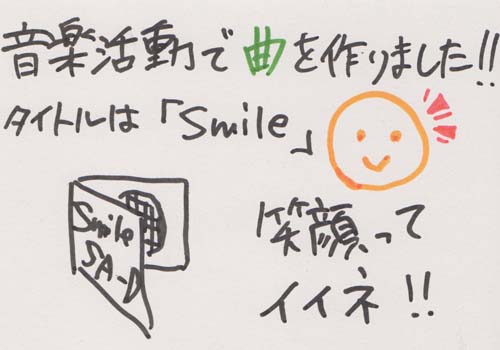 音楽活動で曲を作りました!!
タイトルは「Smile」
Smile
SA-D
笑顔って
イイネ!!